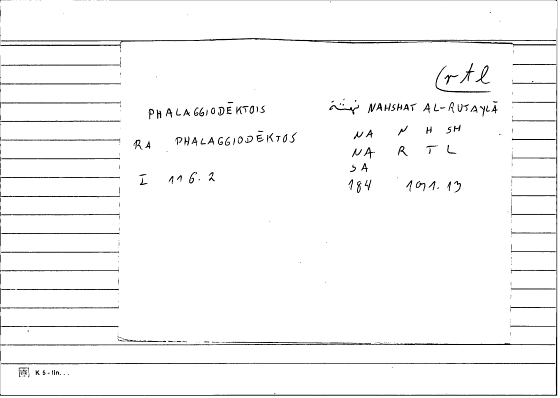 (rtl
PHALAGGIODĒKTOIS نهشة NAHSHAT AL-RUTAYLĀ
RA PHALAGGIODĒKTOS
NA N H SH
NA R T L
SA
I 116.2
184 101.13
K 5 - lIn...